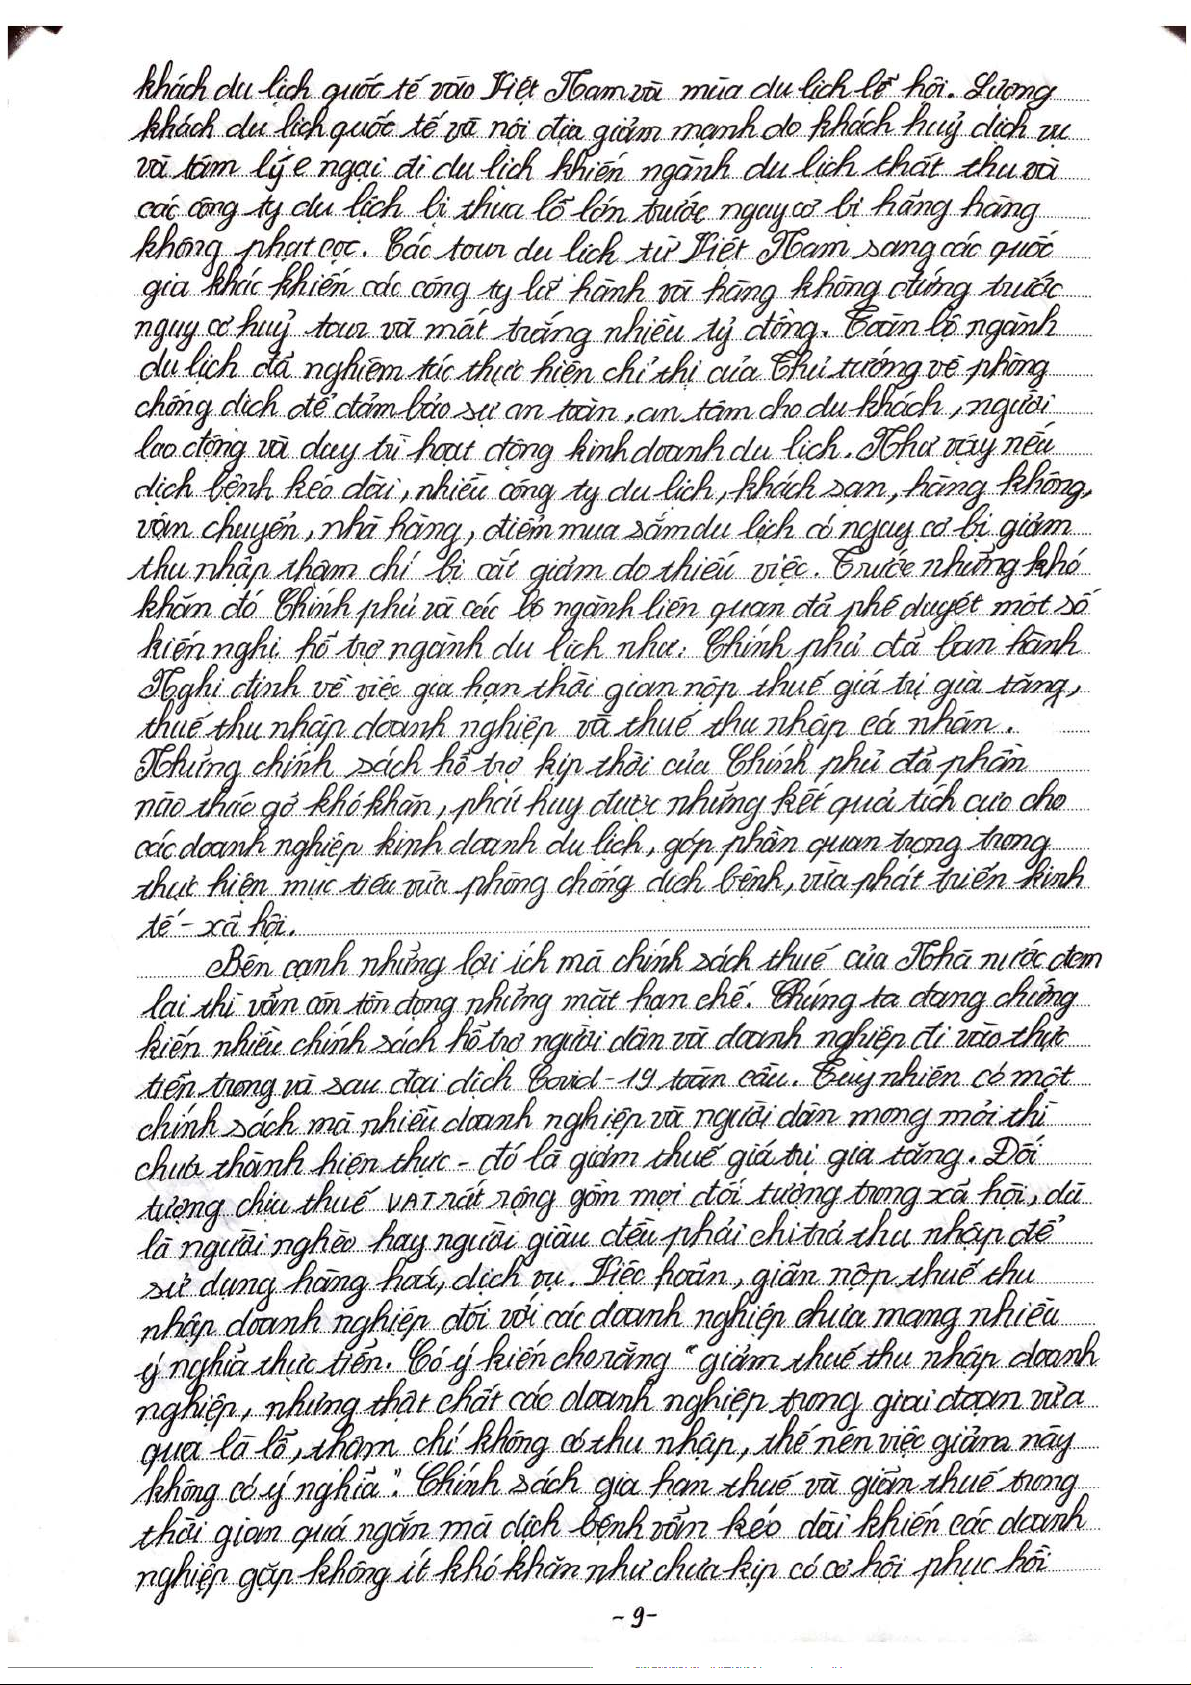 khách du lịch quốc tế vào Việt Nam và mùa du lịch lễ hội. Lượng
khách du lịch quốc tế và nội địa giảm mạnh do khách huỷ dịch vụ
và tâm lý e ngại đi du lịch khiến ngành du lịch thất thu và
các công ty du lịch bị thua lỗ lớn trước nguy cơ bị hãng hàng
không phạt cọc. Các tour du lịch từ Việt Nam sang các quốc
gia khác khiến các công ty lữ hành và hãng không đứng trước
nguy cơ huỷ tour và mất trắng nhiều tỷ đồng. Toàn bộ ngành
du lịch đã nghiêm túc thực hiện chỉ thị của Thủ tướng về phòng
chống dịch để đảm bảo sự an toàn, an tâm cho du khách, người
lao động và duy trì hoạt động kinh doanh du lịch. Như vậy nếu
dịch bệnh kéo dài, nhiều công ty du lịch, khách sạn, hàng không,
vận chuyển, nhà hàng, điểm mua sắm du lịch có nguy cơ bị giảm
thu nhập thậm chí bị cắt giảm do thiếu việc. Trước những khó
khăn đó Chính phủ và các bộ ngành liên quan đã phê duyệt một số
kiến nghị hỗ trợ ngành du lịch như: Chính phủ đã ban hành
Nghị định về việc gia hạn thời gian nộp thuế giá trị gia tăng,
thuế thu nhập doanh nghiệp và thuế thu nhập cá nhân.
Những chính sách hỗ trợ kịp thời của Chính phủ đã phần
nào tháo gỡ khó khăn, phát huy được những kết quả tích cực cho
các doanh nghiệp kinh doanh du lịch, góp phần quan trọng trong
thực hiện mục tiêu vừa phòng chống dịch bệnh, vừa phát triển kinh
tế - xã hội.
Bên cạnh những lợi ích mà chính sách thuế của Nhà nước đem
lại thì vẫn còn tồn đọng những mặt hạn chế. Chúng ta đang chứng
kiến nhiều chính sách hỗ trợ người dân và doanh nghiệp đi vào thực
tiễn trong và sau đại dịch Covid-19 toàn cầu. Tuy nhiên có một
chính sách mà nhiều doanh nghiệp và người dân mong mỏi thì
chưa thành hiện thực - đó là giảm thuế giá trị gia tăng. Đối
tượng chịu thuế VAT rất rộng gồm mọi đối tượng trong xã hội, dù
là người nghèo hay người giàu đều phải chi trả thu nhập để
sử dụng hàng hoá, dịch vụ. Việc hoãn, giãn nộp thuế thu
nhập doanh nghiệp đối với các doanh nghiệp chưa mang nhiều
ý nghĩa thực tiễn. Có ý kiến cho rằng "giảm thuế thu nhập doanh
nghiệp, nhưng thật chất các doanh nghiệp trong giai đoạn vừa
qua là lỗ, thậm chí không có thu nhập, thế nên việc giảm này
không có ý nghĩa". Chính sách gia hạn thuế và giãn thuế trong
thời gian quá ngắn mà dịch bệnh vẫn kéo dài khiến các doanh
nghiệp gặp không ít khó khăn như chưa kịp có cơ hội phục hồi
-9-